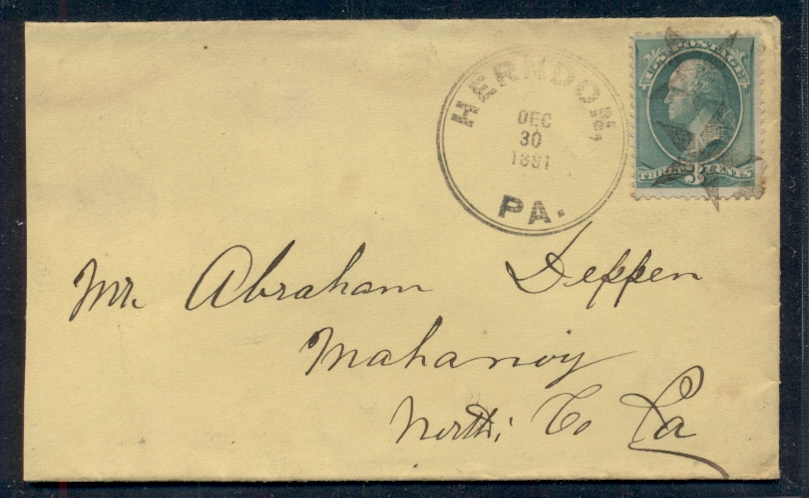 HERNDON,
DEC
30
1881
PA.
U.S. POSTAGE
THREE 3 CENTS
Mr. Abraham Deppen
Mahanoy
North; Co Pa